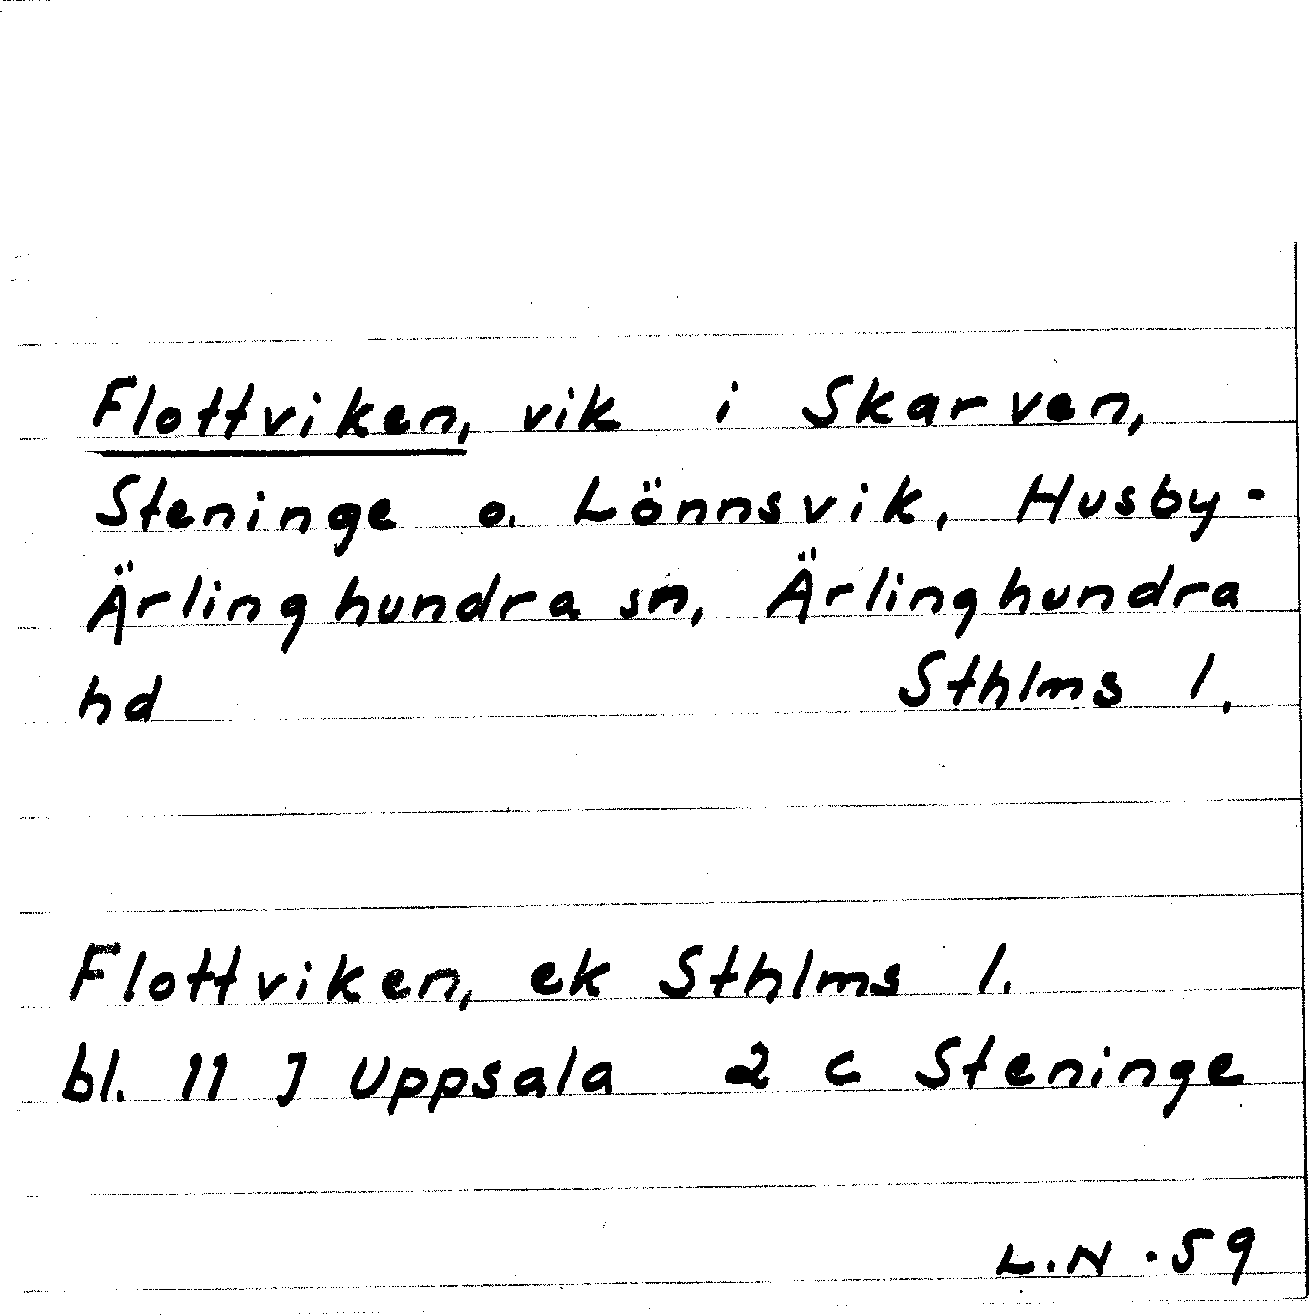 Flottviken, vik i Skarven,
Steninge o. Lönnsvik, Husby-
Ärlinghundra sn, Ärlinghundra
hd Sthlms l.
Flottviken, ek Sthlms l.
bl. 11 J Uppsala 2 c Steninge
L.N. 59